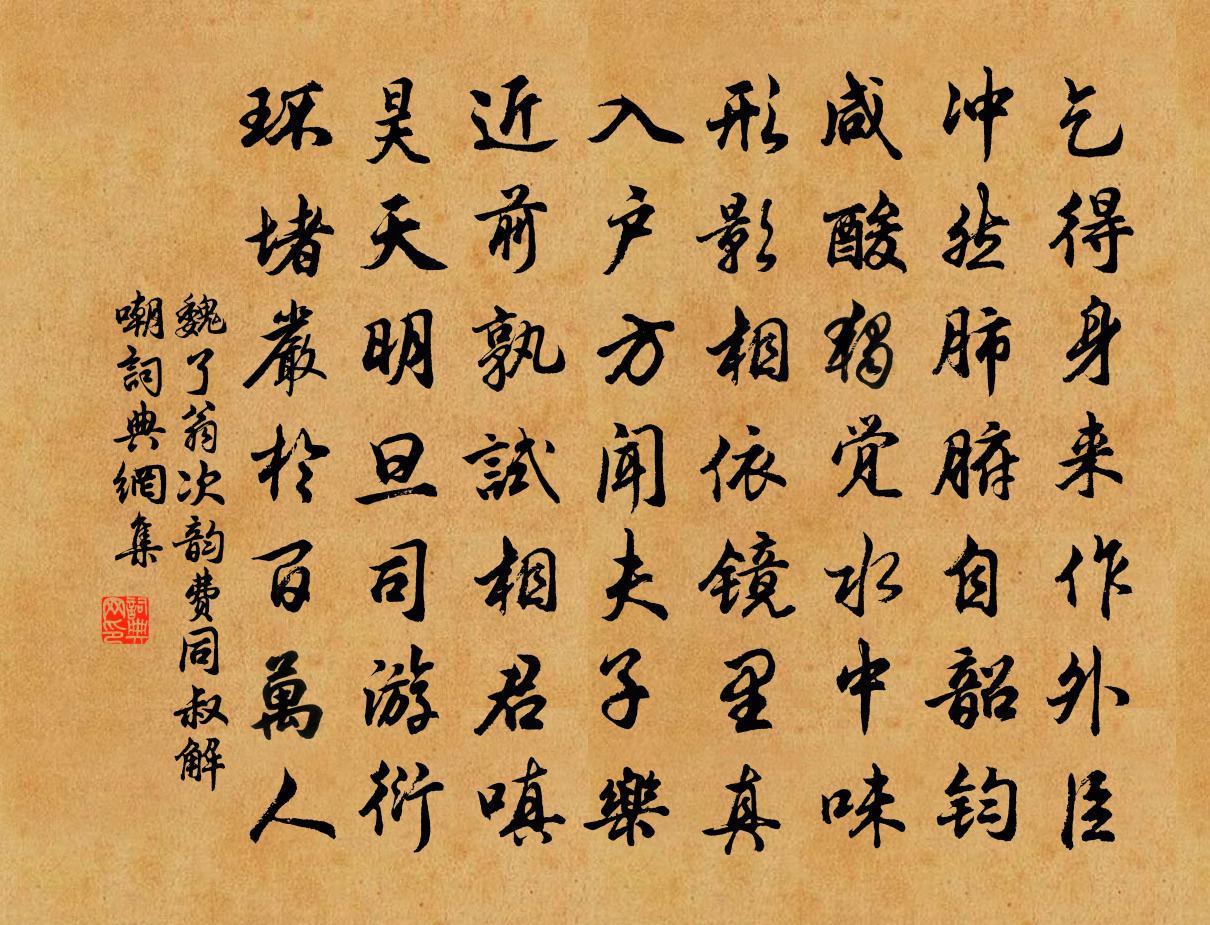 乞得身来作外臣
冲然肺腑自韶钧
咸酸独觉水中味
形影相依镜里真
入户方闻夫子樂
近前孰試相君嗔
昊天明旦司游衍
环堵嚴於百萬人
魏了翁次韵费同叔解
嘲詞典網集
詞典网印